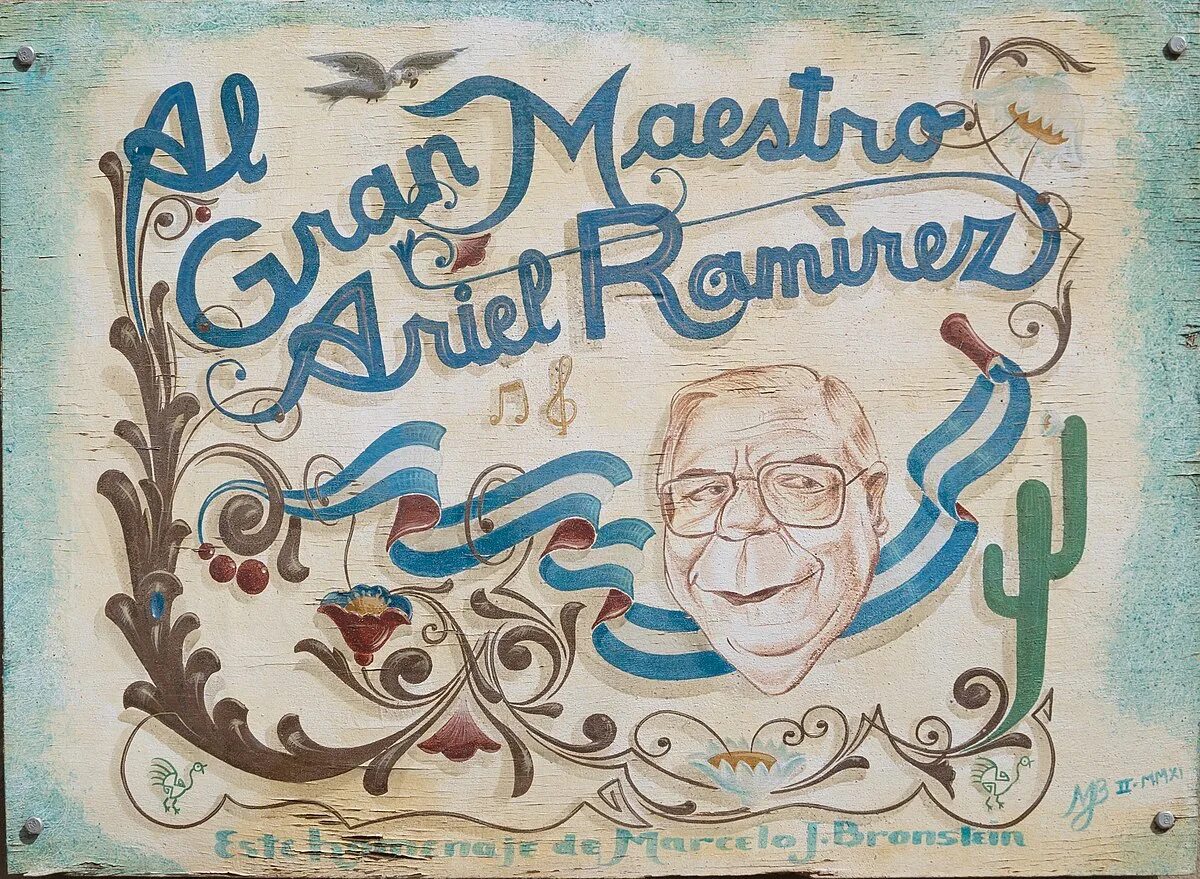 Al
Gran Maestro
Ariel Ramìrez
MJB II-MMXI
Este homenaje de Marcelo J. Bronstein